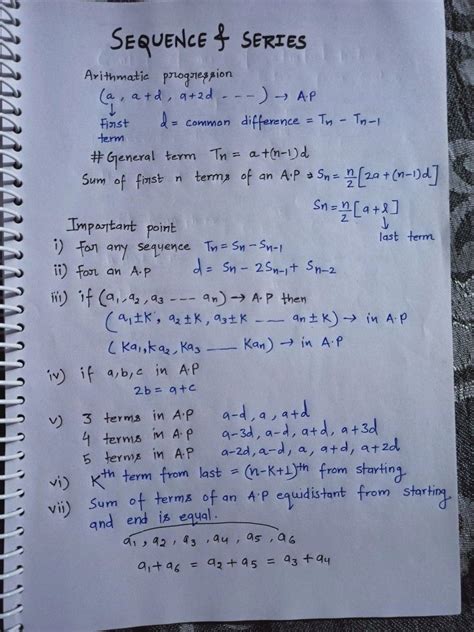 SEQUENCE & SERIES
Arithmatic progression
(a, a+d, a+2d ----) → A.P
↓
First term
d = common difference = Tn - Tn-1
# General term Tn = a+(n-1)d
Sum of first n terms of an A.P ⇒ Sn = n/2 [2a+(n-1)d]
Sn = n/2 [a+l]
↓
last term
Important point
i) for any sequence Tn = Sn - Sn-1
ii) for an A.P d = Sn - 2Sn-1 + Sn-2
iii) if (a1, a2, a3 --- an) → A.P then
(a1±K, a2±K, a3±K --- an±K) → in A.P
(Ka1, Ka2, Ka3 ___ Kan) → in A.P
iv) if a, b, c in A.P
2b = a+c
v) 3 terms in A.P a-d, a, a+d
4 terms in A.P a-3d, a-d, a+d, a+3d
5 terms in A.P a-2d, a-d, a, a+d, a+2d
vi) Kth term from last = (n-K+1)th from starting
vii) Sum of terms of an A.P equidistant from starting
and end is equal.
a1, a2, a3, a4, a5, a6
a1+a6 = a2+a5 = a3+a4